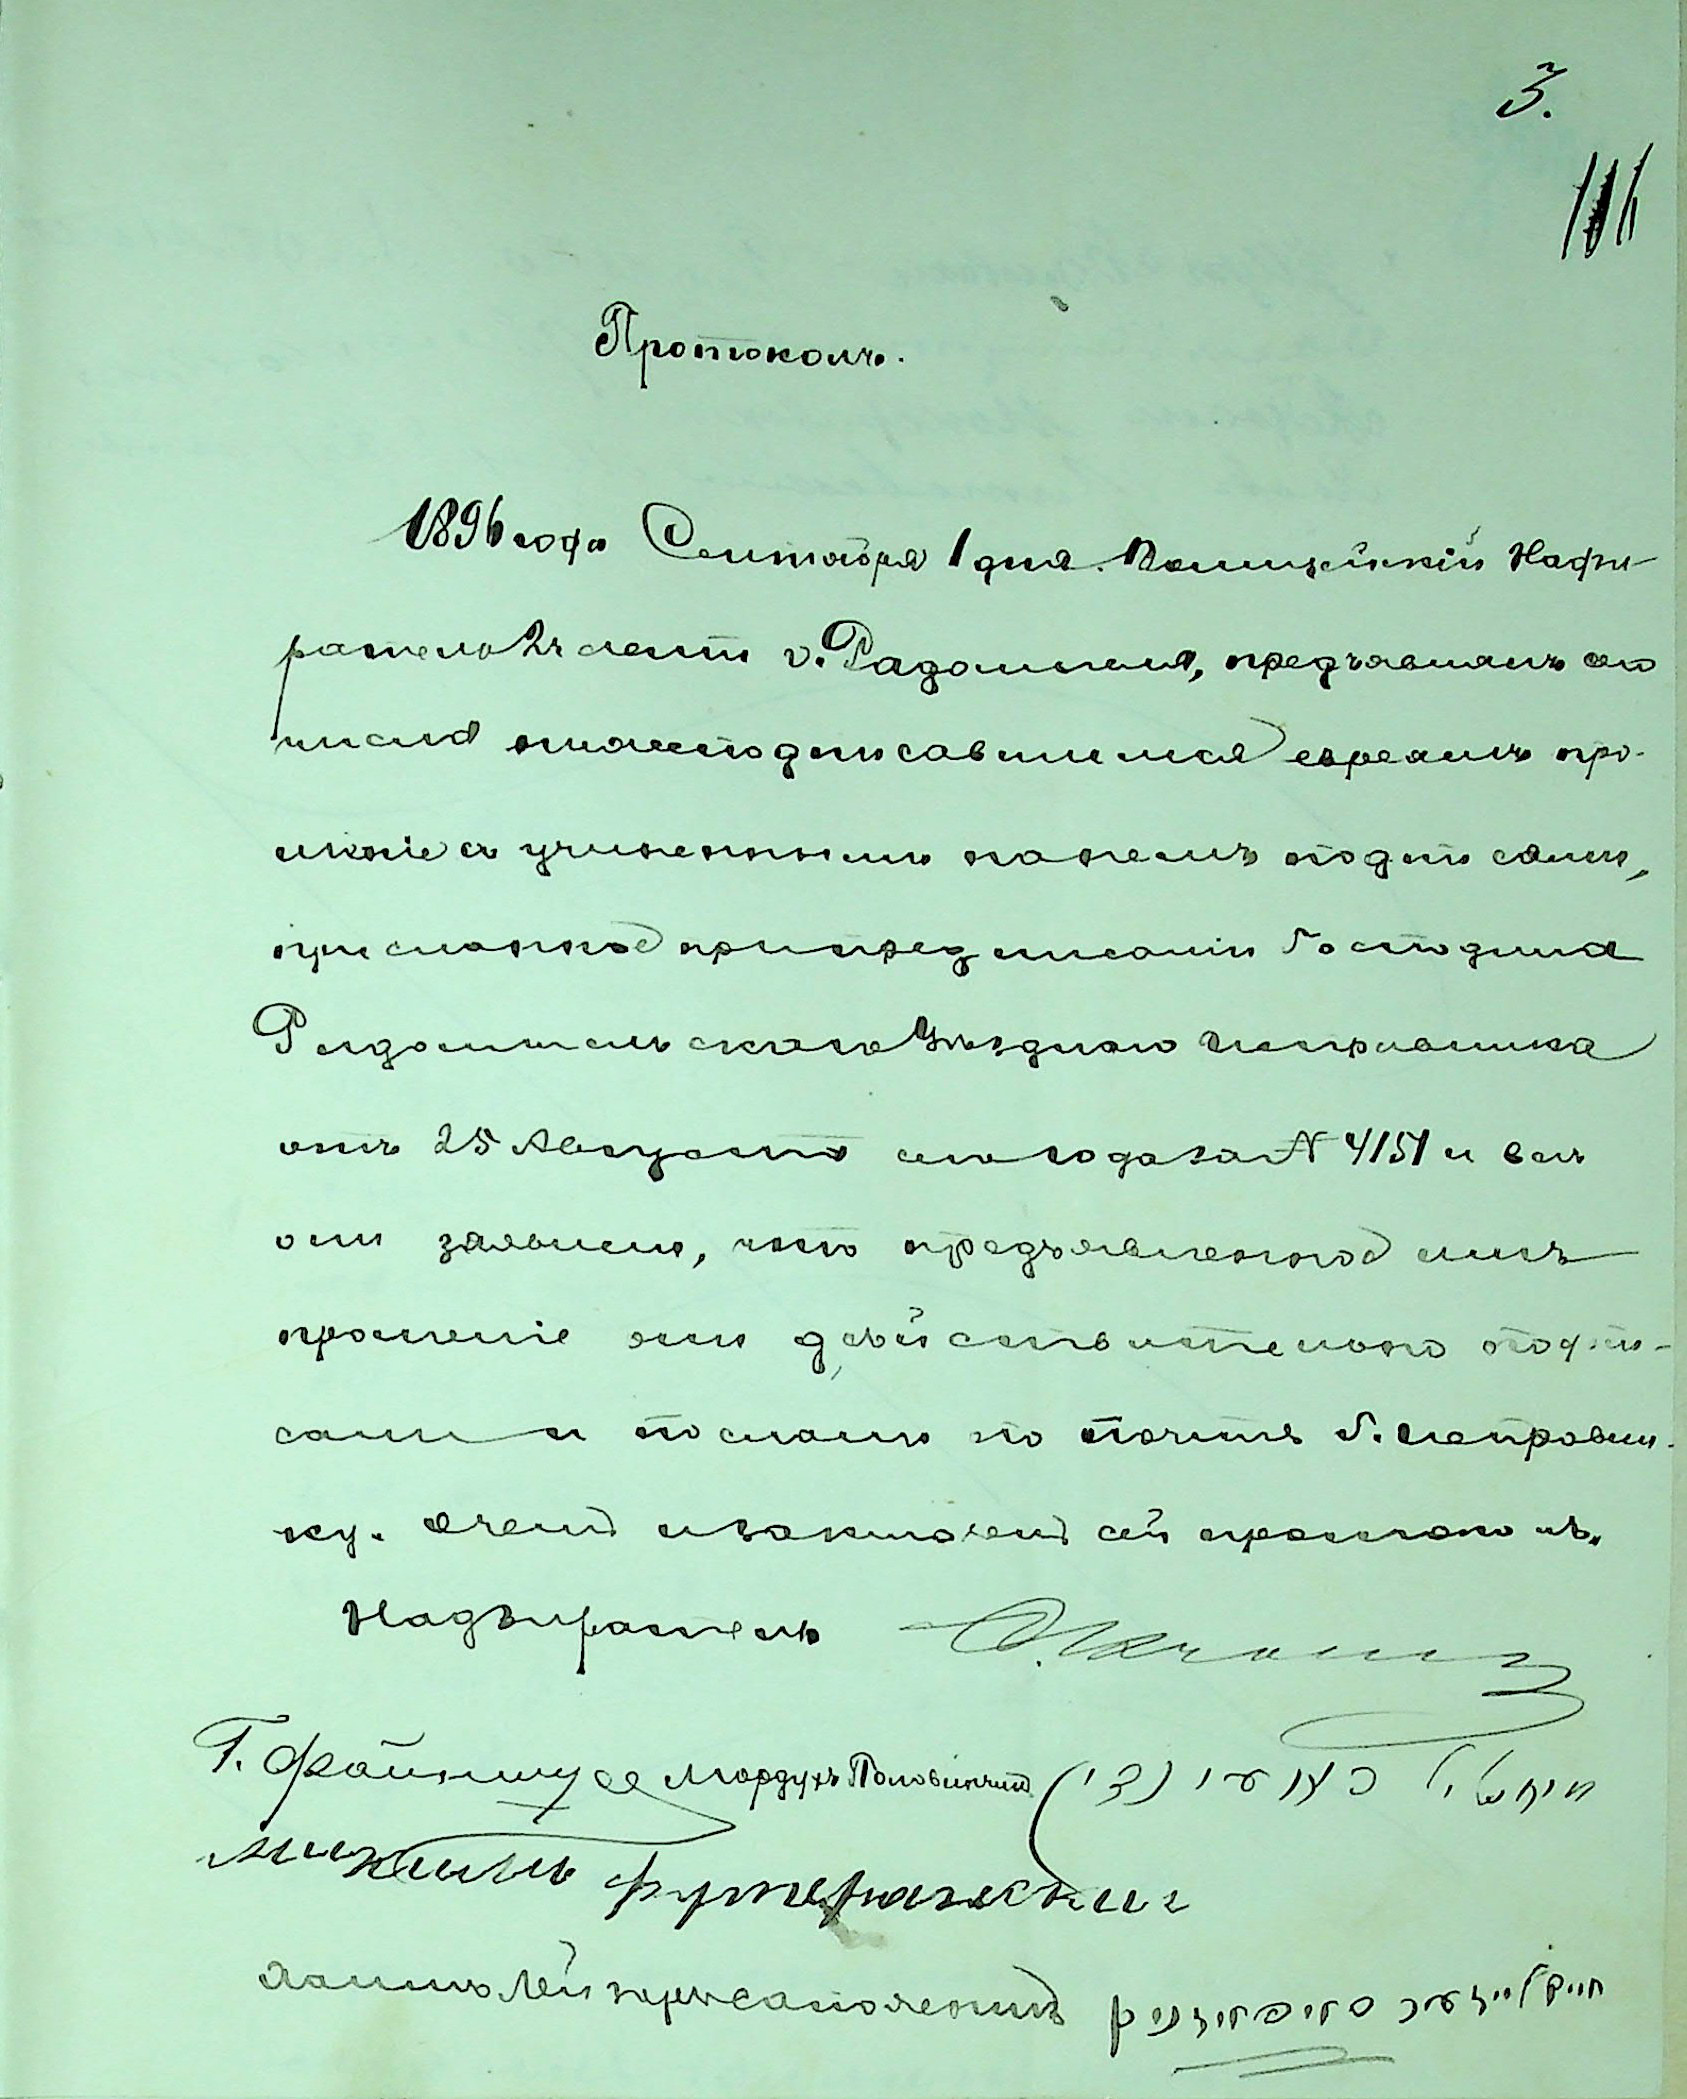 3.
116
Протоколъ.
1896 года Сентября 1 дня. Полицейскій Надзи-
ратель 2й части г. Радомысля, предъявилъ сего
числа нижеподписавшимся евреямъ про-
шеніе съ учиненными на немъ подписями,
присланное при предписаніи Господина
Радомысльскаго Уѣзднаго Исправника
отъ 25 Августа сего года за № 4151 и всѣ
они заявили, что предъявленное имъ
прошеніе они дѣйствительно подпи-
сали и послали по почтѣ Г. Исправни-
ку. О чемъ и заключенъ сей протоколъ.
Надзиратель
Г. Файншусъ Мордухъ Половинчикъ
Микель
Лейзеръ Сапожникъ